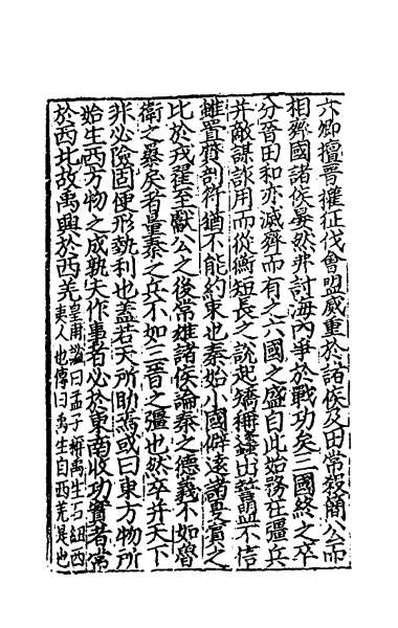 六卿擅晉權征伐會盟威重於諸侯及田常殺簡公而
相齊國諸侯晏然弗討海內爭於戰功矣三國終之卒
分晉田和亦滅齊而有之六國之盛自此始務在彊兵
并敵謀詐用而從衡短長之說起矯稱蠭出誓盟不信
雖置質剖符猶不能約束也秦始小國僻遠諸夏賓之
比於戎翟至獻公之後常雄諸侯論秦之德義不如魯
衛之暴戾者量秦之兵不如三晉之彊也然卒并天下
非必險固便形埶利也蓋若天所助焉或曰東方物所
始生西方物之成孰夫作事者必於東南收功實者常
於西北故禹興於西羌皇甫謐曰孟子稱禹生石紐西
夷人也傳曰禹生自西羌是也